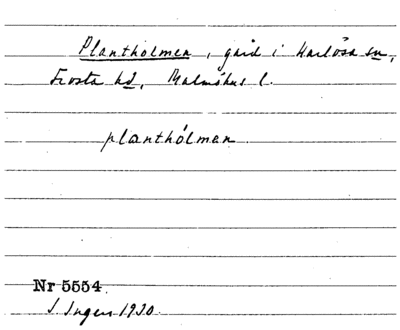 Plantholmen, gård i Harlösa sn,
Frosta hd, Malmöhus l.
planthólmen
Nr 5554
I. Ingers 1930.